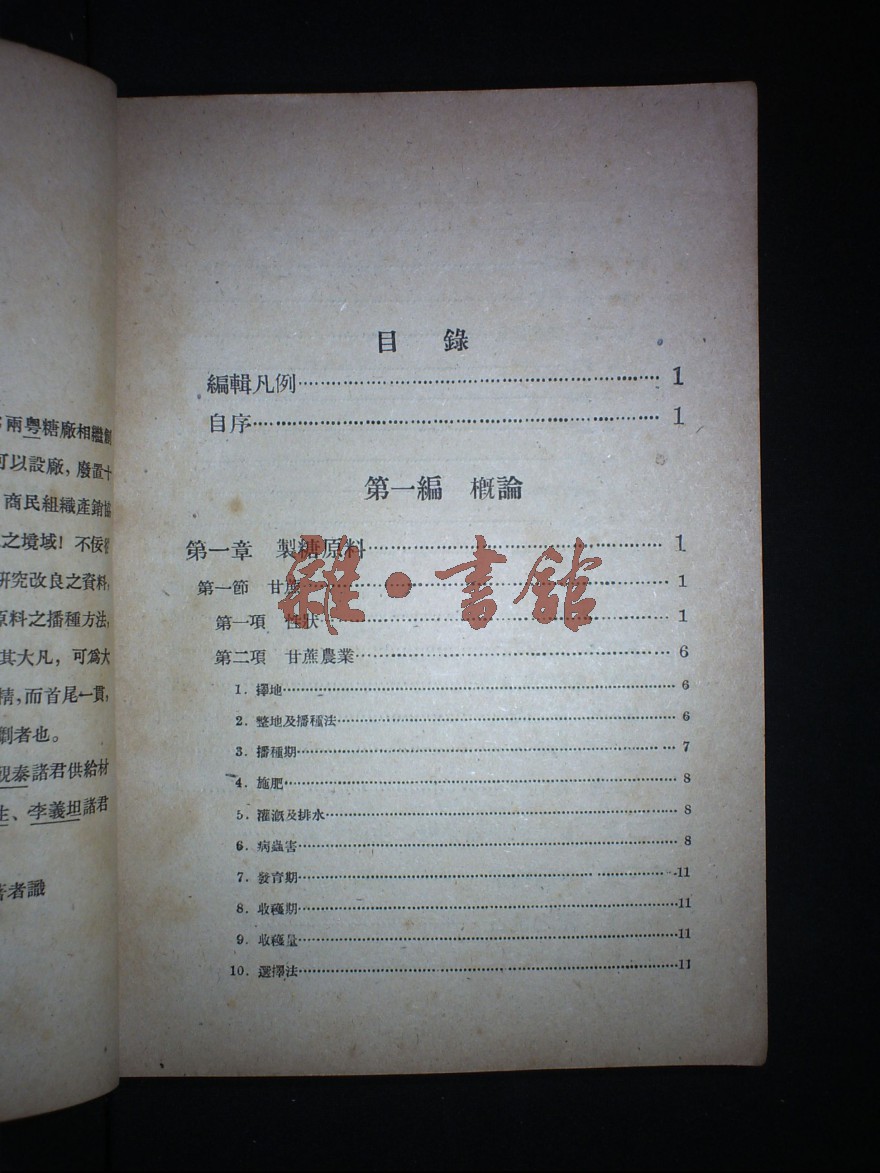 兩粤糖廠相繼創
可以設廠，廢置十
商民組織產銷協
之境域！不佞從
研究改良之資料，
原料之播種方法，
其大凡，可爲大
精，而首尾一貫，
劂者也。
觀泰諸君供給材
生、李義坦諸君
著者識
目錄
編輯凡例 1
自序 1
第一編 概論
第一章 製糖原料 1
第一節 甘蔗 1
第一項 性狀 1
第二項 甘蔗農業 6
1. 擇地 6
2. 整地及播種法 6
3. 播種期 7
4. 施肥 8
5. 灌漑及排水 8
6. 病蟲害 8
7. 發育期 11
8. 收穫期 11
9. 收穫量 11
10. 選擇法 11
雜·書館